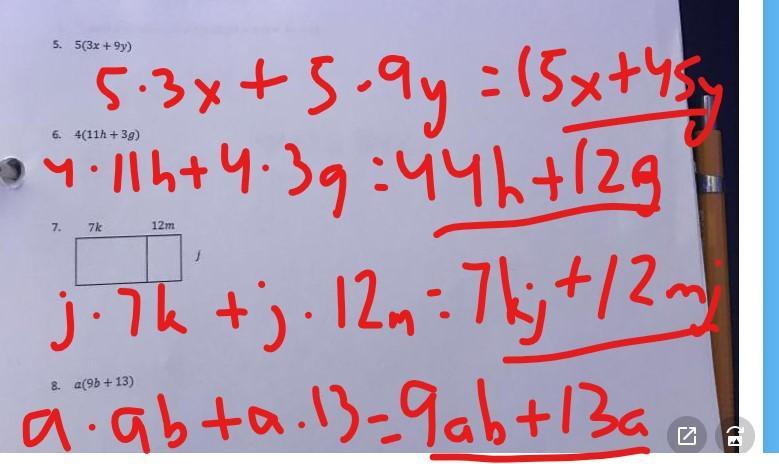 5. 5(3x + 9y)
5·3x + 5·9y = 15x+45y
6. 4(11h + 3g)
4·11h+4·3g=44h+12g
7. 7k 12m
j
j·7k + j·12m=7kj+12mj
8. a(9b + 13)
a·9b+a·13=9ab+13a